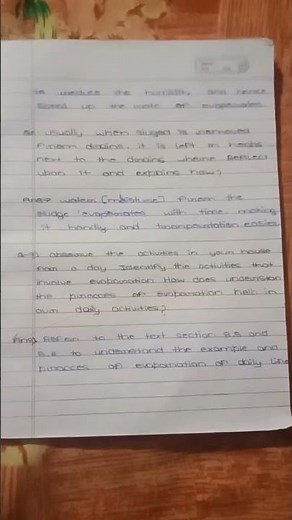 to reduce the humidity and hence
speed up the rate of evaporation
Q6. Usually when sludged is removed
from drains, it is left in heaps
next to the drains where Reflect
upon it and explains how?
Ans? water (moisture) from the
sludge evaporates with time making
it handly and transpoutation easier
Q-7) observe the activities in your house
from a day Identify the activities that
involve evaporation How does understan
the process of evaporation help in
our daily activities?
Ans) Refer to the text section 5.5 and
to understand the example and
process of evaporation of daily line